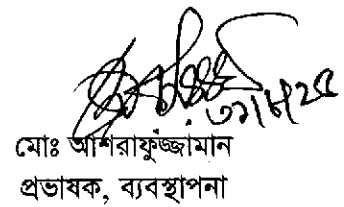 ৩১/৮/২৫
মোঃ আশরাফুজ্জামান
প্রভাষক, ব্যবস্থাপনা